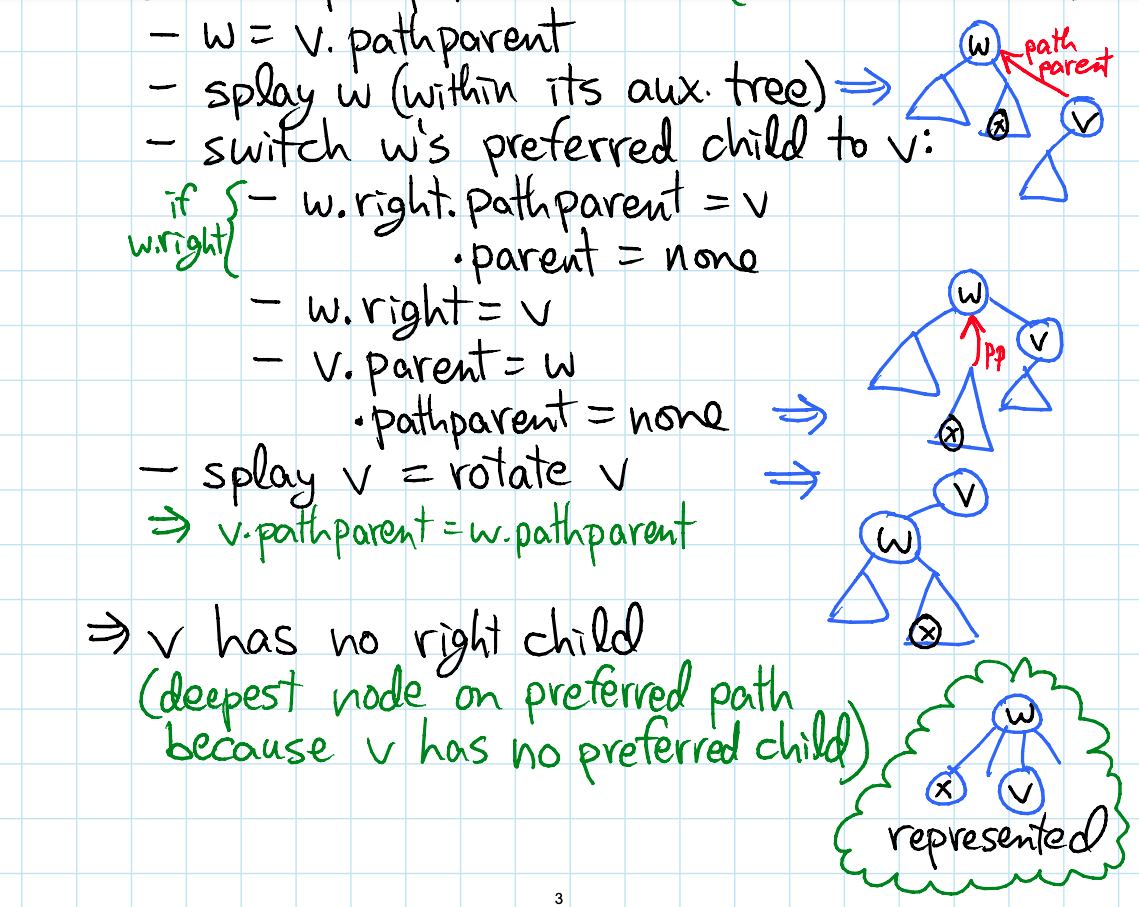 - w = v.pathparent
- splay w (within its aux. tree) ⇒
- switch w's preferred child to v:
if w.right { - w.right.pathparent = v
.parent = none
- w.right = v
- v.parent = w
.pathparent = none ⇒
- splay v = rotate v ⇒
⇒ v.pathparent = w.pathparent
⇒ v has no right child
(deepest node on preferred path
because v has no preferred child)
w
path
parent
x
v
w
v
pp
x
v
w
x
w
x
v
represented
3